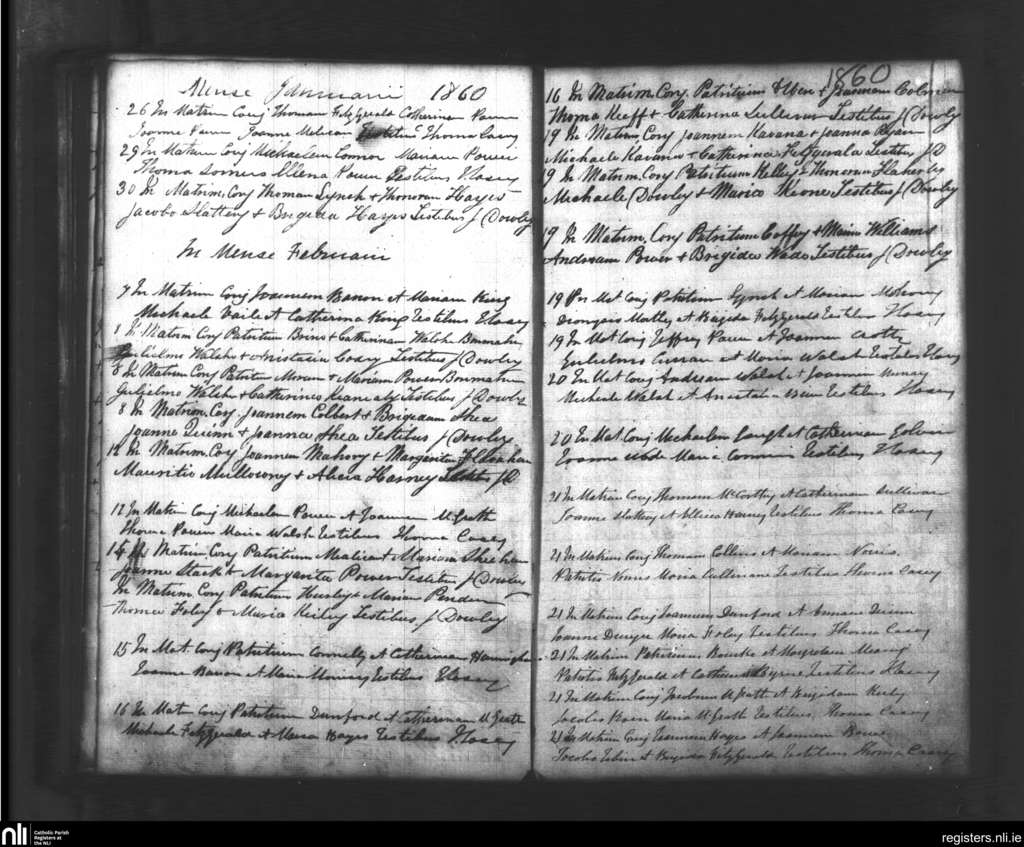 Mense Januarii 1860
26 In Matrim Conj Thomam Fitzgerald Catherinam Power
Joanne Power Joanne Meliean Testibus Thoma Casey
29 In Matrim Conj Michaelem Connor Mariam Power
Thoma Somers Ellena Power Testibus T Casey
30 In Matrim. Conj Thomam Lynch & Honoram Hayes
Jacobo Slattery & Brigida Hayes Testibus J Dowley
In Mense Februarii
7 In Matrim Conj Joannem Baron et Mariam King
Michaele Vaile et Catherina King Testibus T Casey
8 In Matrim Conj Patritium Brins & Catherinam Walsh Bonmahon
Gulielmo Walsh & Casey Testibus J Dowley
8 In Matrim Conj Patritium Moran & Mariam Power Bonmahon
Gulielmo Walsh & Catherina Testibus J Dowley
8 In Matrim. Conj. Joannem Colbert & Brigidam Shea
Joanne Quinn & Joanna Shea Testibus J Dowley
12 In Matrim. Conj Joannem Mahony & Margaritam
Mauritio Mullowny & Alicia Harney Testibus J D
12 In Matrim Conj Michaelem Power et Joannam McGrath
Thoma Power Maria Walsh Testibus Thoma Casey
14 In Matrim. Conj Patritium & Mariam Sheehan
Joanne Stack & Margarita Power Testibus J Dowley
In Matrim. Conj Patritium Hurley & Mariam
Thoma Foley & Maria Keiley Testibus J Dowley
15 In Mat. Conj Patritium Connelly et Catherinam
Joanne Baron et Maria Testibus T Casey
16 In Mat Conj Patritium Dunford et Catherinam McGrath
Michaele Fitzgerald et Maria Hayes Testibus T Casey
1860
16 In Matrim. Conj. Patritium & Joannam Colman
Thoma Keeff & Catherina Sullivan Testibus J Dowley
19 In Matrim Conj Joannem Kavana & Joanna Ryan
Michaele Kavana & Catherina Fitzgerald Testibus J D
19 In Matrim. Conj Patritium Kelly & Honoram Flaherty
Michaele Dowley & Maria Keone Testibus J Dowley
19 In Matrim. Conj Patritium Coffey & Mariam Williams
Andream Power & Brigida Wade Testibus J Dowley
19 In Mat Conj Patritium Lynch et Mariam Mahony
Dionysio et Brigida Fitzgerald Testibus T Casey
19 In Mat Conj Jeffrey Power et Joannam
Gulielmo Curran et Maria Walsh Testibus T Casey
20 In Mat Conj Andream Walsh et Joannam
Michaele Walsh et Testibus T Casey
20 In Mat Conj Michaelem et Catherinam
Joanne Wade Maria Testibus T Casey
21 In Matrim Conj Thomam McCarthy et Catherinam Sullivan
Joanne Slattery et Ellena Harney Testibus Thoma Casey
21 In Matrim Conj Thomam Collins et Mariam Norris
Patritio Norris Maria Cullinane Testibus Thoma Casey
21 In Matrim Conj Joannem Dunford et
Joanne Dwyer Maria Foley Testibus Thoma Casey
21 In Matrim Patritium Bourke et Margaritam
Patritio Fitzgerald et Catherina Byrne Testibus T Casey
21 In Matrim Conj Jacobum McGrath et Brigidam
Jacobo Maria McGrath Testibus Thoma Casey
21 In Matrim Conj Joannem Hayes et Joannam
Jacobo & Brigida Fitzgerald Testibus Thoma Casey
nli Catholic Parish
Registers at
the NLI
registers.nli.ie